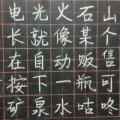 电光火石山
长就像某个
在自动贩售
按下一瓶可
矿泉水咕咚